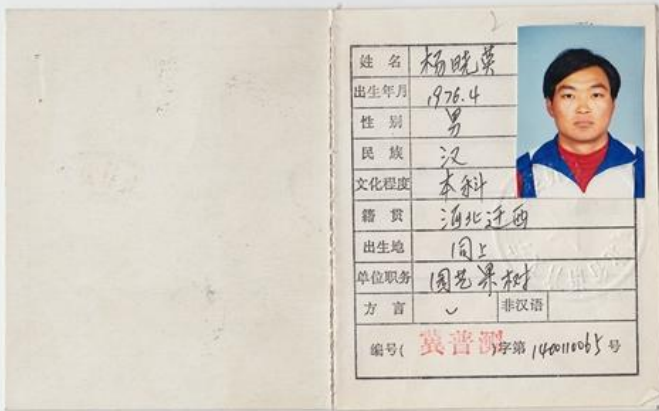 姓 名 杨晓英
出生年月 1976.4
性 别 男
民 族 汉
文化程度 本科
籍 贯 河北迁西
出生地 同上
单位职务 园艺果树
方 言 非汉语
编号( 冀普测 )字第 140110065 号